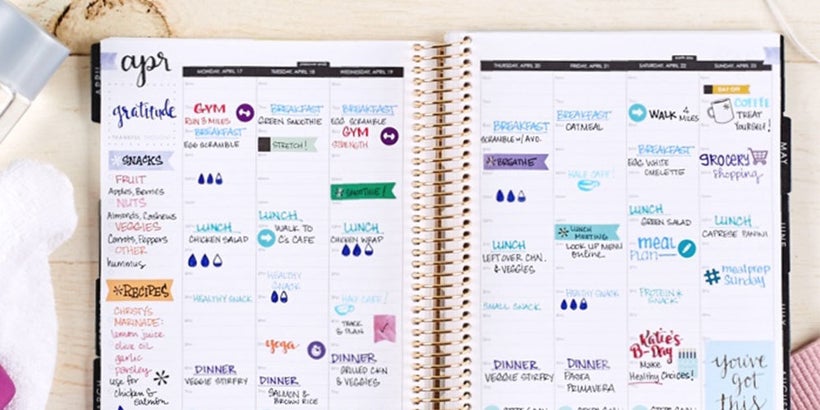 apr
gratitude
SNACKS
FRUIT
Apples, Berries
NUTS
Almonds, Cashews
VEGGIES
Carrots, Peppers
OTHER
hummus
RECIPES
CHRISTY'S
MARINADE:
lemon juice
olive oil
garlic
parsley
use for
chicken &
salmon
MONDAY, APRIL 17
GYM
RUN 3 MILES
BREAKFAST
EGG SCRAMBLE
LUNCH
CHICKEN SALAD
HEALTHY SNACK
DINNER
VEGGIE STIRFRY
TUESDAY, APRIL 18
BREAKFAST
GREEN SMOOTHIE
STRETCH!
LUNCH
WALK TO
C's CAFE
HEALTHY
SNACK
yoga
DINNER
SALMON &
BROWN RICE
WEDNESDAY, APRIL 19
BREAKFAST
EGG SCRAMBLE
GYM
STRENGTH
SMOOTHIE!
LUNCH
CHICKEN WRAP
HALF CAFE!
TRACK
& PLAN
DINNER
GRILLED CKN
& VEGGIES
THURSDAY, APRIL 20
BREAKFAST
SCRAMBLE W/ AVO.
BREATHE
LUNCH
LEFTOVER CHN.
& VEGGIES
SMALL SNACK
DINNER
VEGGIE STIRFRY
FRIDAY, APRIL 21
BREAKFAST
OATMEAL
HALF CAFE!
LUNCH
MEETING
LOOK UP MENU
online
HEALTHY SNACK
DINNER
PASTA
PRIMAVERA
SATURDAY, APRIL 22
WALK 4
MILES
BREAKFAST
EGG WHITE
OMELETTE
LUNCH
GREEN SALAD
meal
PLAN
PROTEIN &
SNACK
Katie's
B-Day
Make
Healthy Choices!
SUNDAY, APRIL 23
DAY OFF
COFFEE
TREAT
YOURSELF!
GROCERY
shopping
LUNCH
CAPRESE PANINI
#mealprep
Sunday
you've
got
this
MAY
JUNE